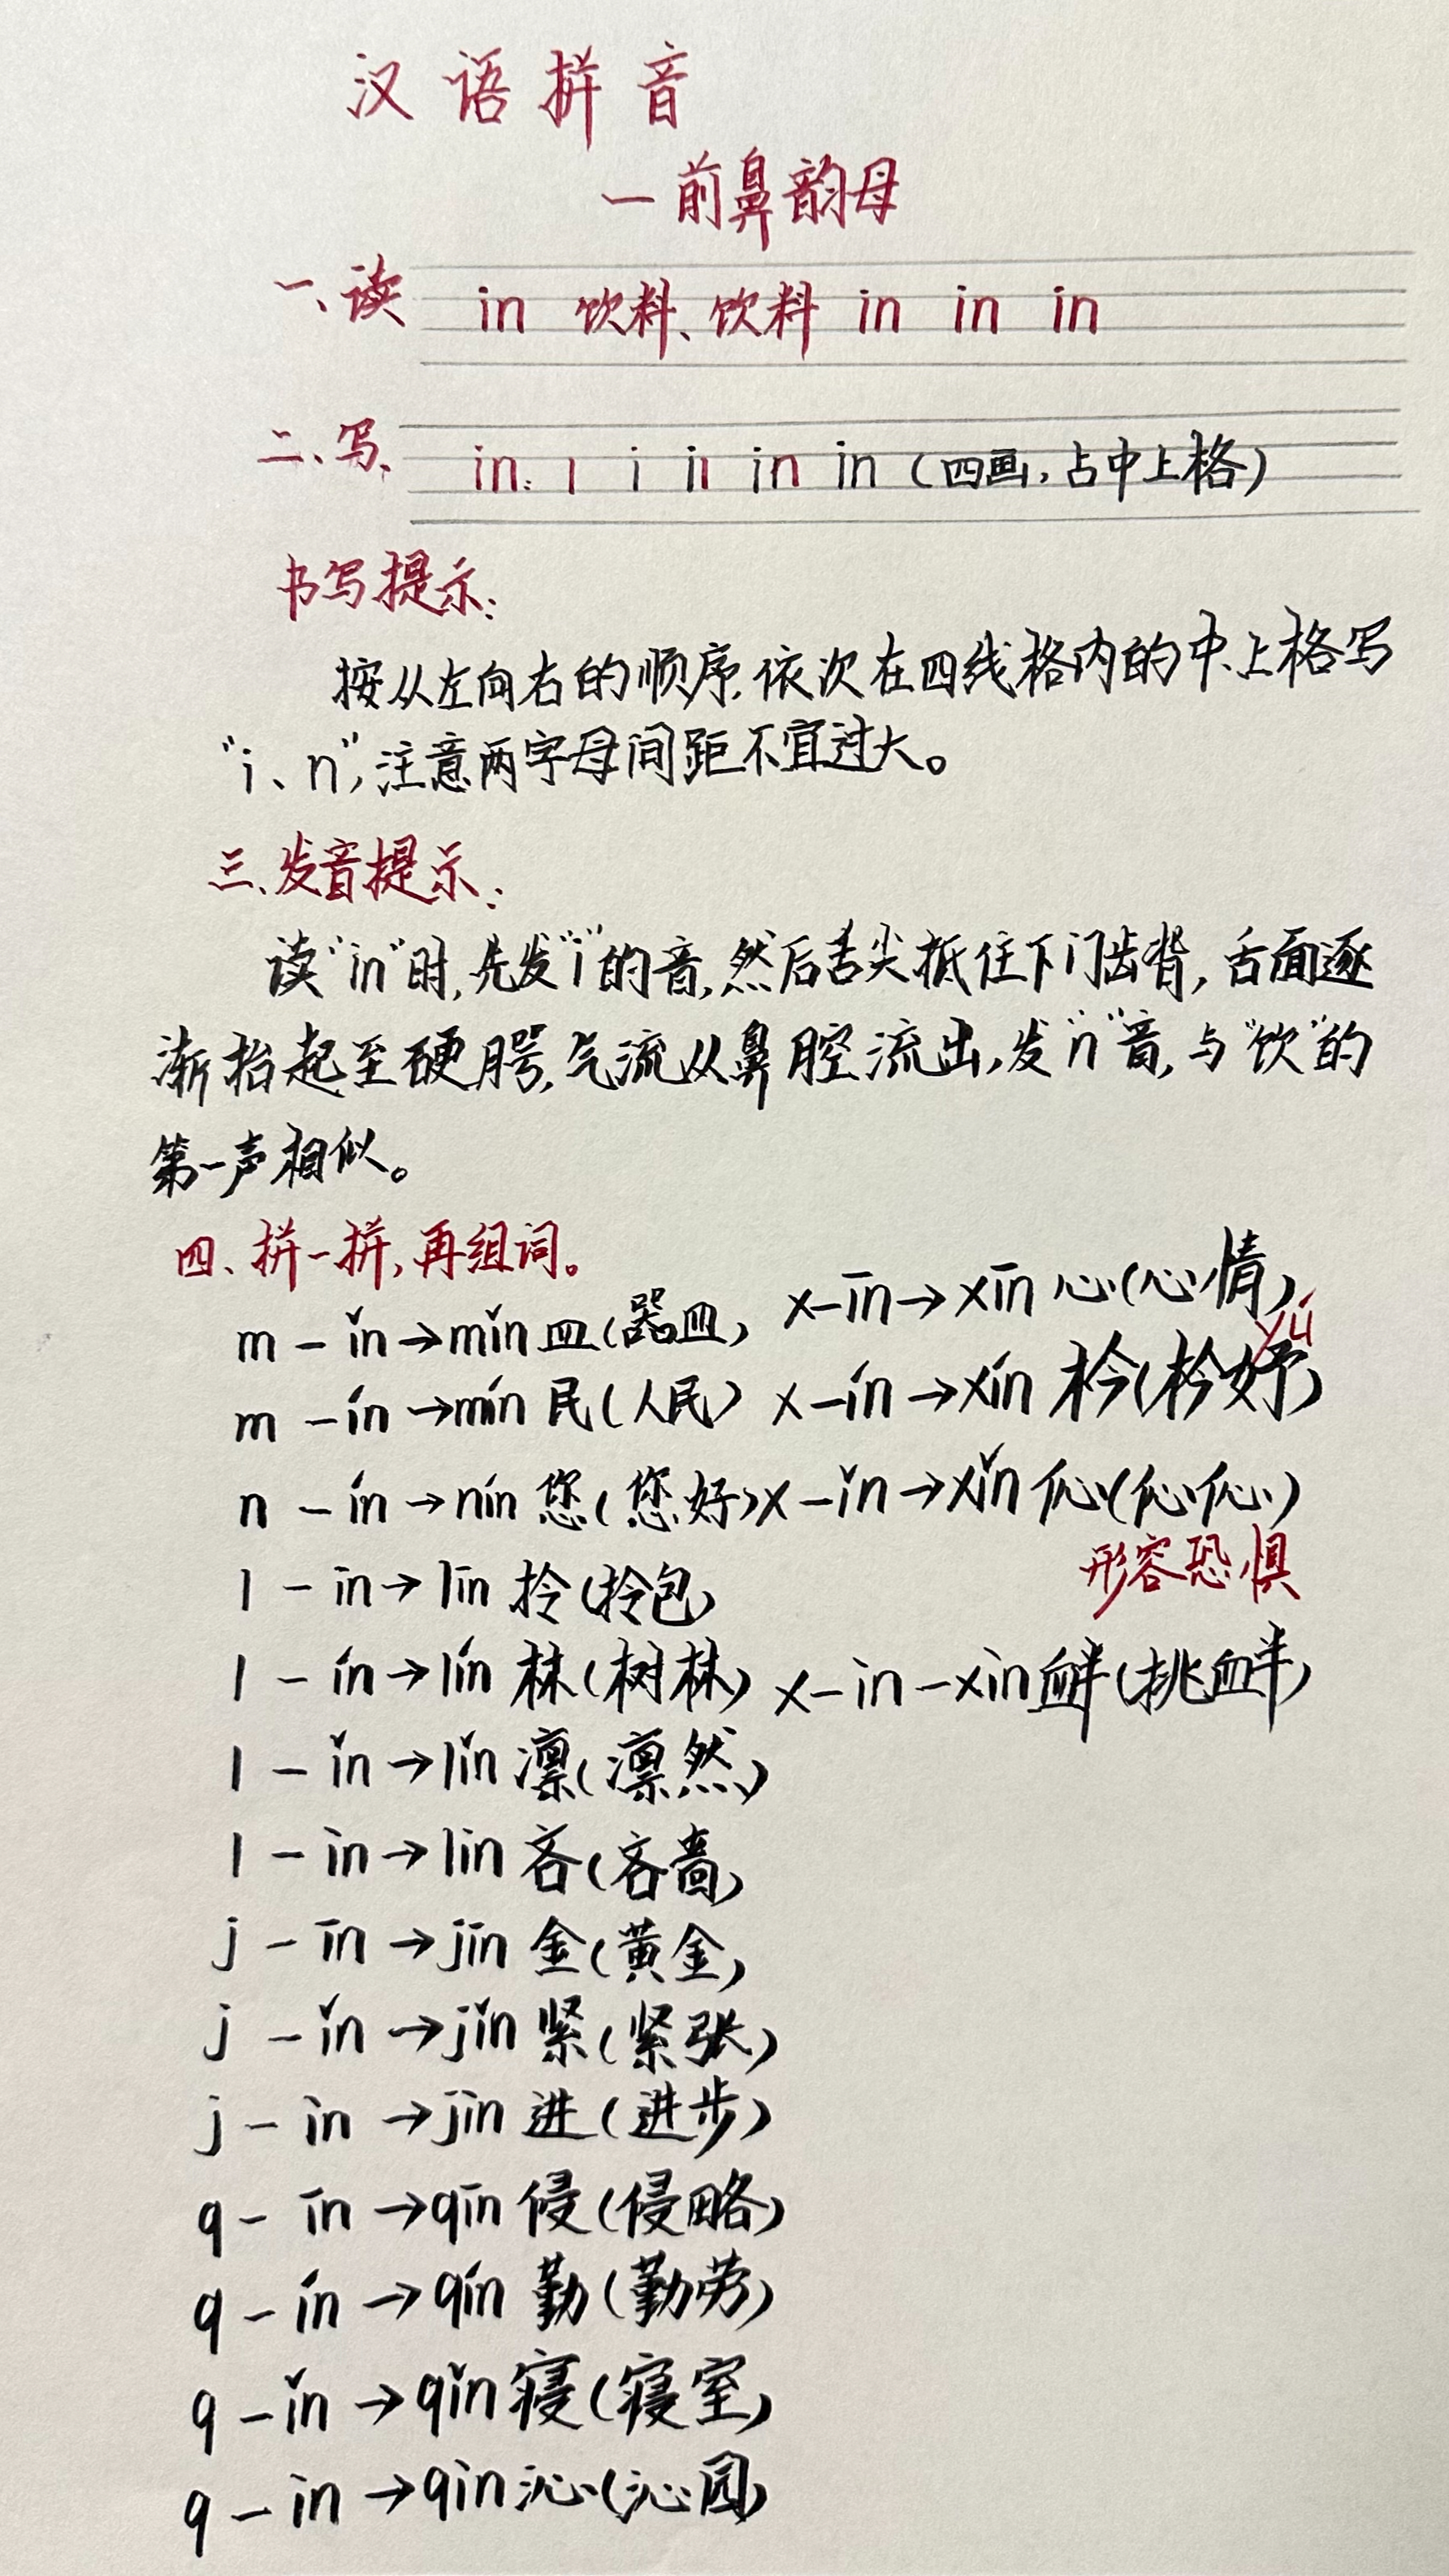 汉语拼音
一前鼻韵母
一、读 in 饮料、饮料 in in in
二、写、 in: l i iı in in (四画,占中上格)
书写提示:
按从左向右的顺序,依次在四线格内的中、上格写
“i、n”,注意两字母间距不宜过大。
三、发音提示:
读“in”时,先发“i”的音,然后舌尖抵住下门齿背,舌面逐
渐抬起至硬腭,气流从鼻腔流出,发“n”音,与“饮”的
第一声相似。
四、拼一拼,再组词。
m - ǐn → mǐn 皿(器皿) x - īn → xīn 心(心情)
yú
m - ín → mín 民(人民) x - ín → xín 枔(枔妤)
n - ín → nín 您(您好) x - ǐn → xǐn 伈(伈伈)
形容恐惧
l - īn → līn 拎(拎包)
l - ín → lín 林(树林) x - ìn - xìn 衅(挑衅)
l - ǐn → lǐn 凛(凛然)
l - ìn → lìn 吝(吝啬)
j - īn → jīn 金(黄金)
j - ǐn → jǐn 紧(紧张)
j - ìn → jìn 进(进步)
q - īn → qīn 侵(侵略)
q - ín → qín 勤(勤劳)
q - ǐn → qǐn 寝(寝室)
q - ìn → qìn 沁(沁园)